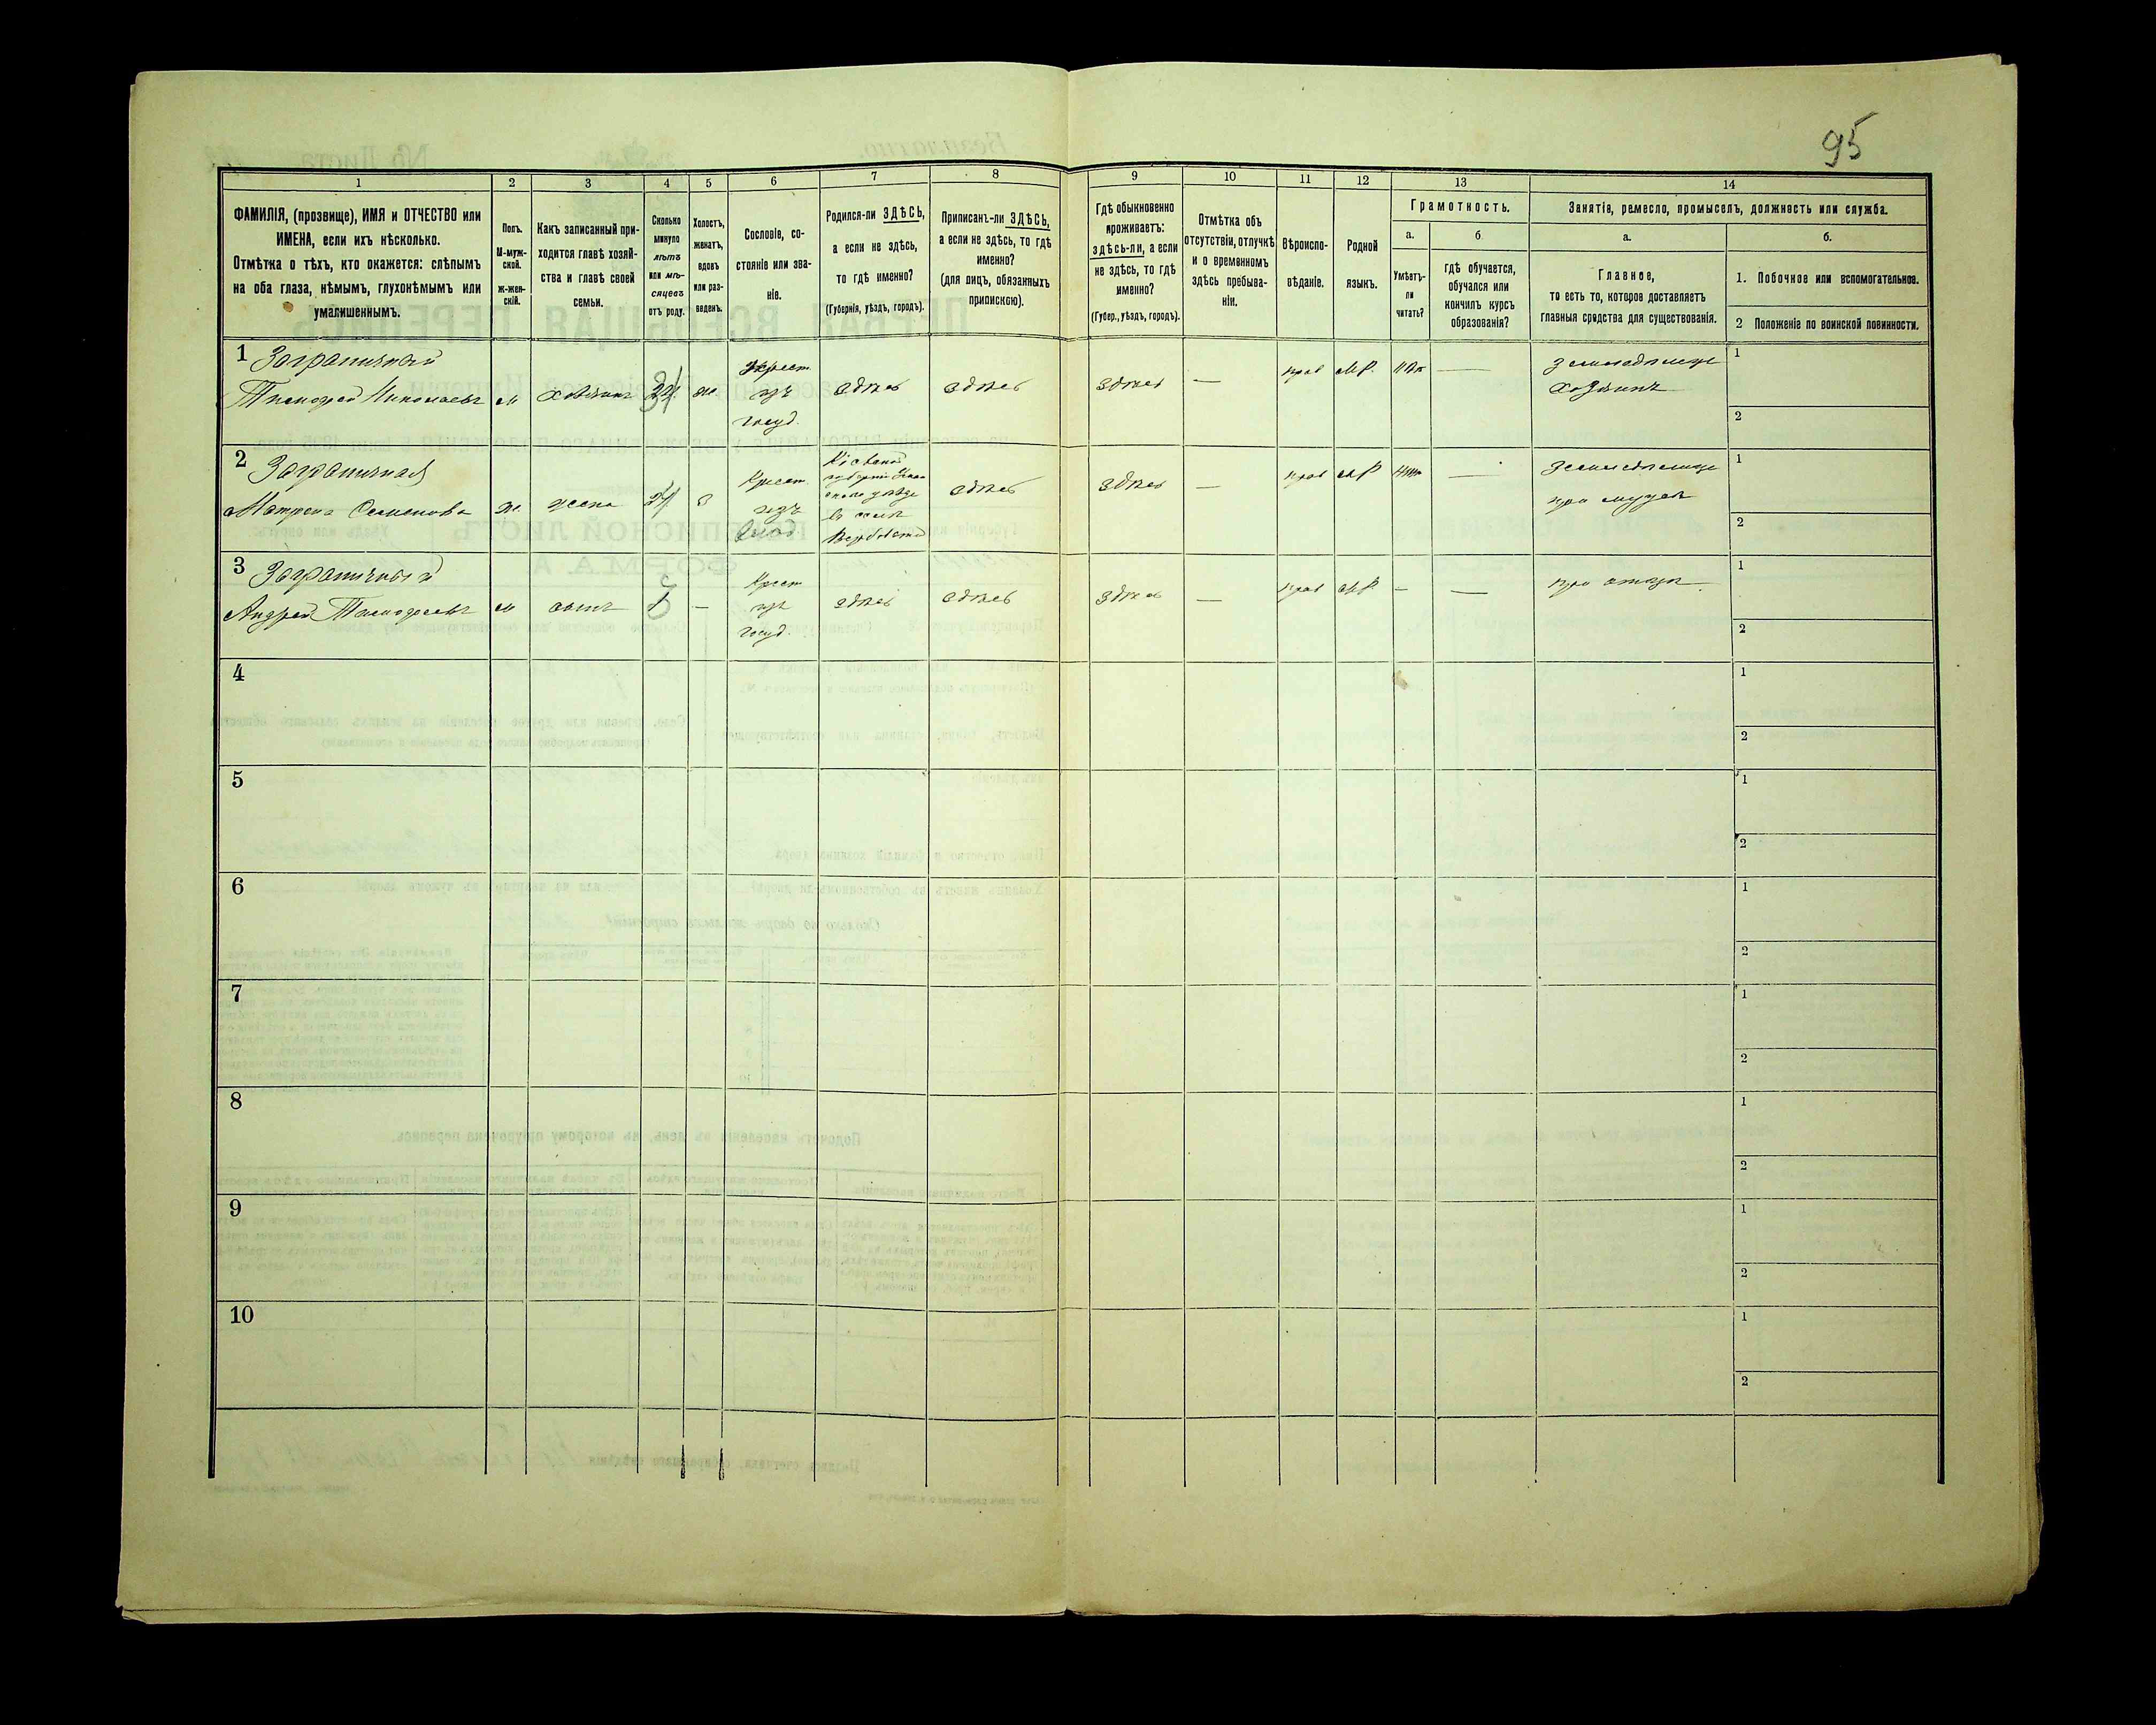 95
1 2 3 4 5 6 7 8 9 10 11 12 13 14
ФАМИЛІЯ, (прозвище), ИМЯ и ОТЧЕСТВО или
ИМЕНА, если ихъ нѣсколько.
Отмѣтка о тѣхъ, кто окажется: слѣпымъ
на оба глаза, нѣмымъ, глухонѣмымъ или
умалишеннымъ.
Полъ.
М-муж-
ской.
Ж-жен-
скій.
Какъ записанный при-
ходится главѣ хозяй-
ства и главѣ своей
семьи.
Сколько
минуло
лѣтъ
или мѣ-
сяцевъ
отъ роду.
Холостъ,
женатъ,
вдовъ
или раз-
веденъ.
Сословіе, со-
стояніе или зва-
ніе.
Родился-ли ЗДѢСЬ,
а если не здѣсь,
то гдѣ именно?
(Губернія, уѣздъ, городъ).
Приписанъ-ли ЗДѢСЬ,
а если не здѣсь, то гдѣ
именно?
(для лицъ, обязанныхъ
припискою).
Гдѣ обыкновенно
проживаетъ:
здѣсь-ли, а если
не здѣсь, то гдѣ
именно?
(Губер., уѣздъ, городъ).
Отмѣтка объ
отсутствіи, отлучкѣ
и о временномъ
здѣсь пребыва-
ніи.
Вѣроиспо-
вѣданіе.
Родной
языкъ.
Грамотность.
а.
Умѣетъ-
ли
читать?
б
гдѣ обучается,
обучался или
кончилъ курсъ
образованія?
Занятіе, ремесло, промыселъ, должность или служба.
а.
Главное,
то есть то, которое доставляетъ
главныя средства для существованія.
б.
1. Побочное или вспомогательное.
2 Положеніе по воинской повинности.
1 Заграничный
Тимофей Николаевъ м хозяинъ ж.
крест.
изъ
госуд.
здѣсь здѣсь здѣсь — прав М.Р. —
земледѣлецъ
хозяинъ
1
2
2 Заграничная
Матрена Семенова ж. жена 24 з
Крест.
изъ
Кіевской
губерніи
въ селѣ
здѣсь здѣсь — прав М.Р. —
при мужѣ
1
2
3 Заграничный
Андрей Тимофеевъ м сынъ —
Крест
изъ
госуд.
здѣсь здѣсь здѣсь — прав М.Р. — —
при отцѣ
1
2
4
1
2
5
1
2
6
1
2
7
1
2
8
1
2
9
1
2
10
1
2